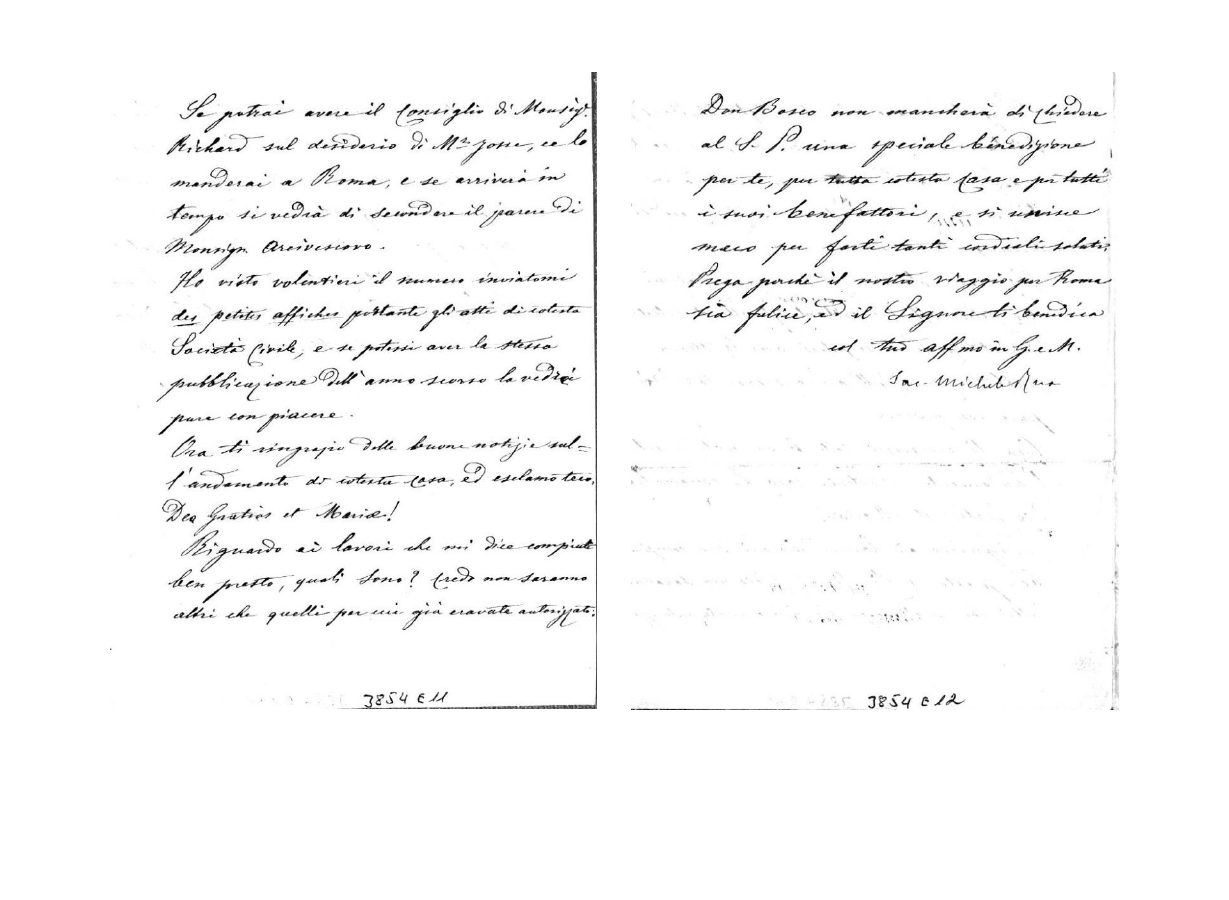 Se potrai avere il Consiglio di Monsigr.
Richard sul desiderio di Mr Josse, ce lo
manderai a Roma, e se arriverà in
tempo si vedrà di secondare il parere di
Monsign. Arcivescovo.
Ho visto volentieri il numero inviatomi
des petites affiches portante gli atti di cotesta
Società Civile, e se potessi aver la stessa
pubblicazione dell'anno scorso la vedrei
pure con piacere.
Ora ti ringrazio delle buone notizie sul=
l'andamento di cotesta Casa, ed esclamo teco,
Deo Gratias et Mariæ!
Riguardo ai lavori che mi dice compiuti
ben presto, quali sono? Credo non saranno
altri che quelli per cui già eravate autorizzati.
3854 E 11
Don Bosco non mancherà di chiedere
al S. P. una speciale benedizione
per te, per tutta cotesta Casa e pr tutti
i suoi benefattori, e si unisce
meco per farti tanti cordiali saluti.
Prega perchè il nostro viaggio per Roma
sia felice, ed il Signore ti benedica
col tuo affmo in G. e M.
Sac. Michele Rua
3854 E 12